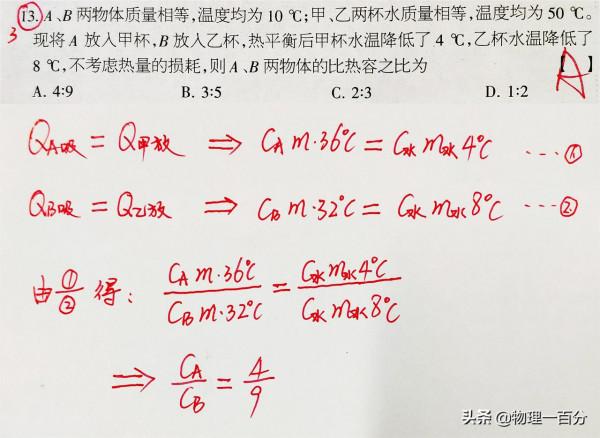 13. A、B 两物体质量相等,温度均为 10 ℃;甲、乙两杯水质量相等,温度均为 50 ℃。
3
现将 A 放入甲杯,B 放入乙杯,热平衡后甲杯水温降低了 4 ℃,乙杯水温降低了
8 ℃,不考虑热量的损耗,则 A、B 两物体的比热容之比为 【A】
A. 4:9 B. 3:5 C. 2:3 D. 1:2
Q_A吸 = Q_甲放 ⇒ C_A m·36℃ = C_水 m_水 4℃ …①
Q_B吸 = Q_乙放 ⇒ C_B m·32℃ = C_水 m_水 8℃ …②
由 ①/② 得: C_A m·36℃ / C_B m·32℃ = C_水 m_水 4℃ / C_水 m_水 8℃
⇒ C_A / C_B = 4 / 9
头条 @物理一百分